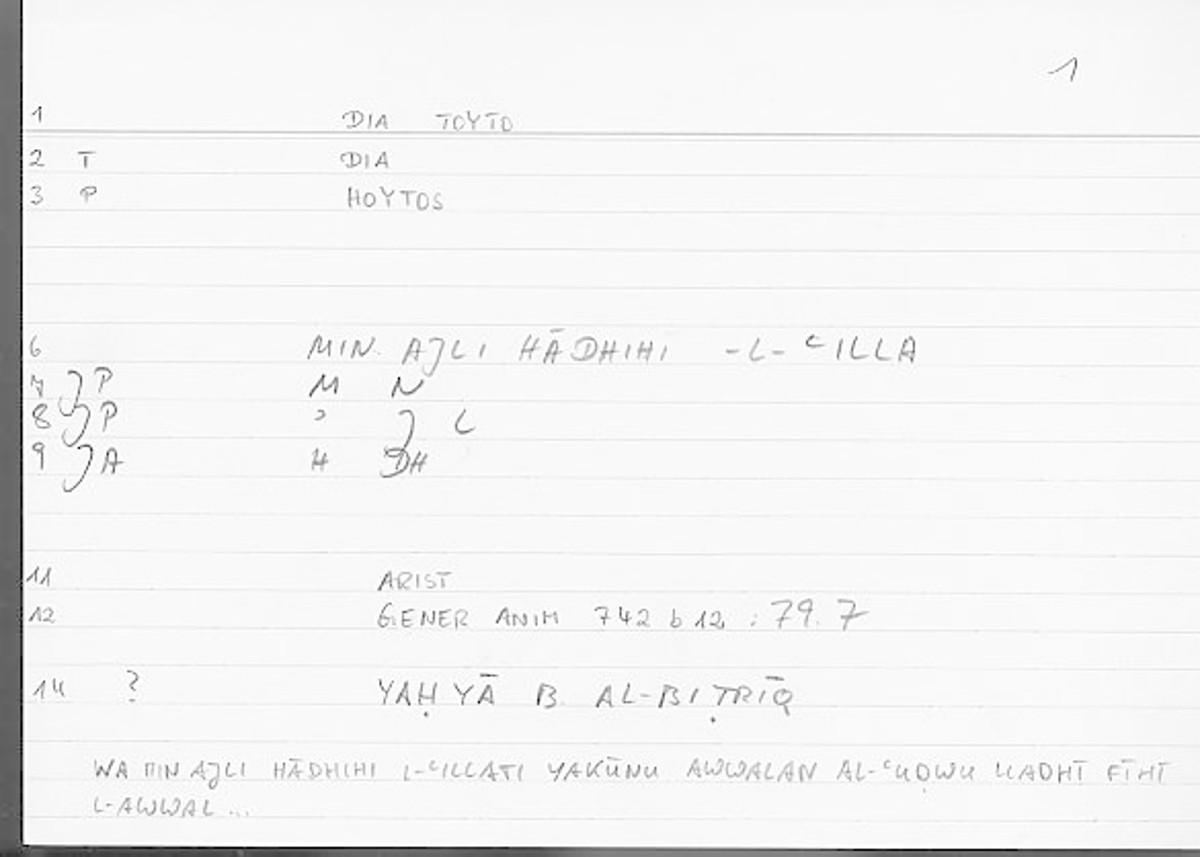 1
1 DIA TOYTO
2 T DIA
3 P HOYTOS
6 MIN AJLI HĀDHIHI -L- ʿILLA
7 JP M N
8 JP ʾ J L
9 JA H DH
11 ARIST
12 GENER ANIM 742 b 12 : 79.7
14 ? YAḤYĀ B. AL-BIṬRĪQ
WA MIN AJLI HĀDHIHI L-ʿILLATI YAKŪNU AWWALAN AL-ʿUḌWU LLADHĪ FĪHĪ
L-AWWAL ...